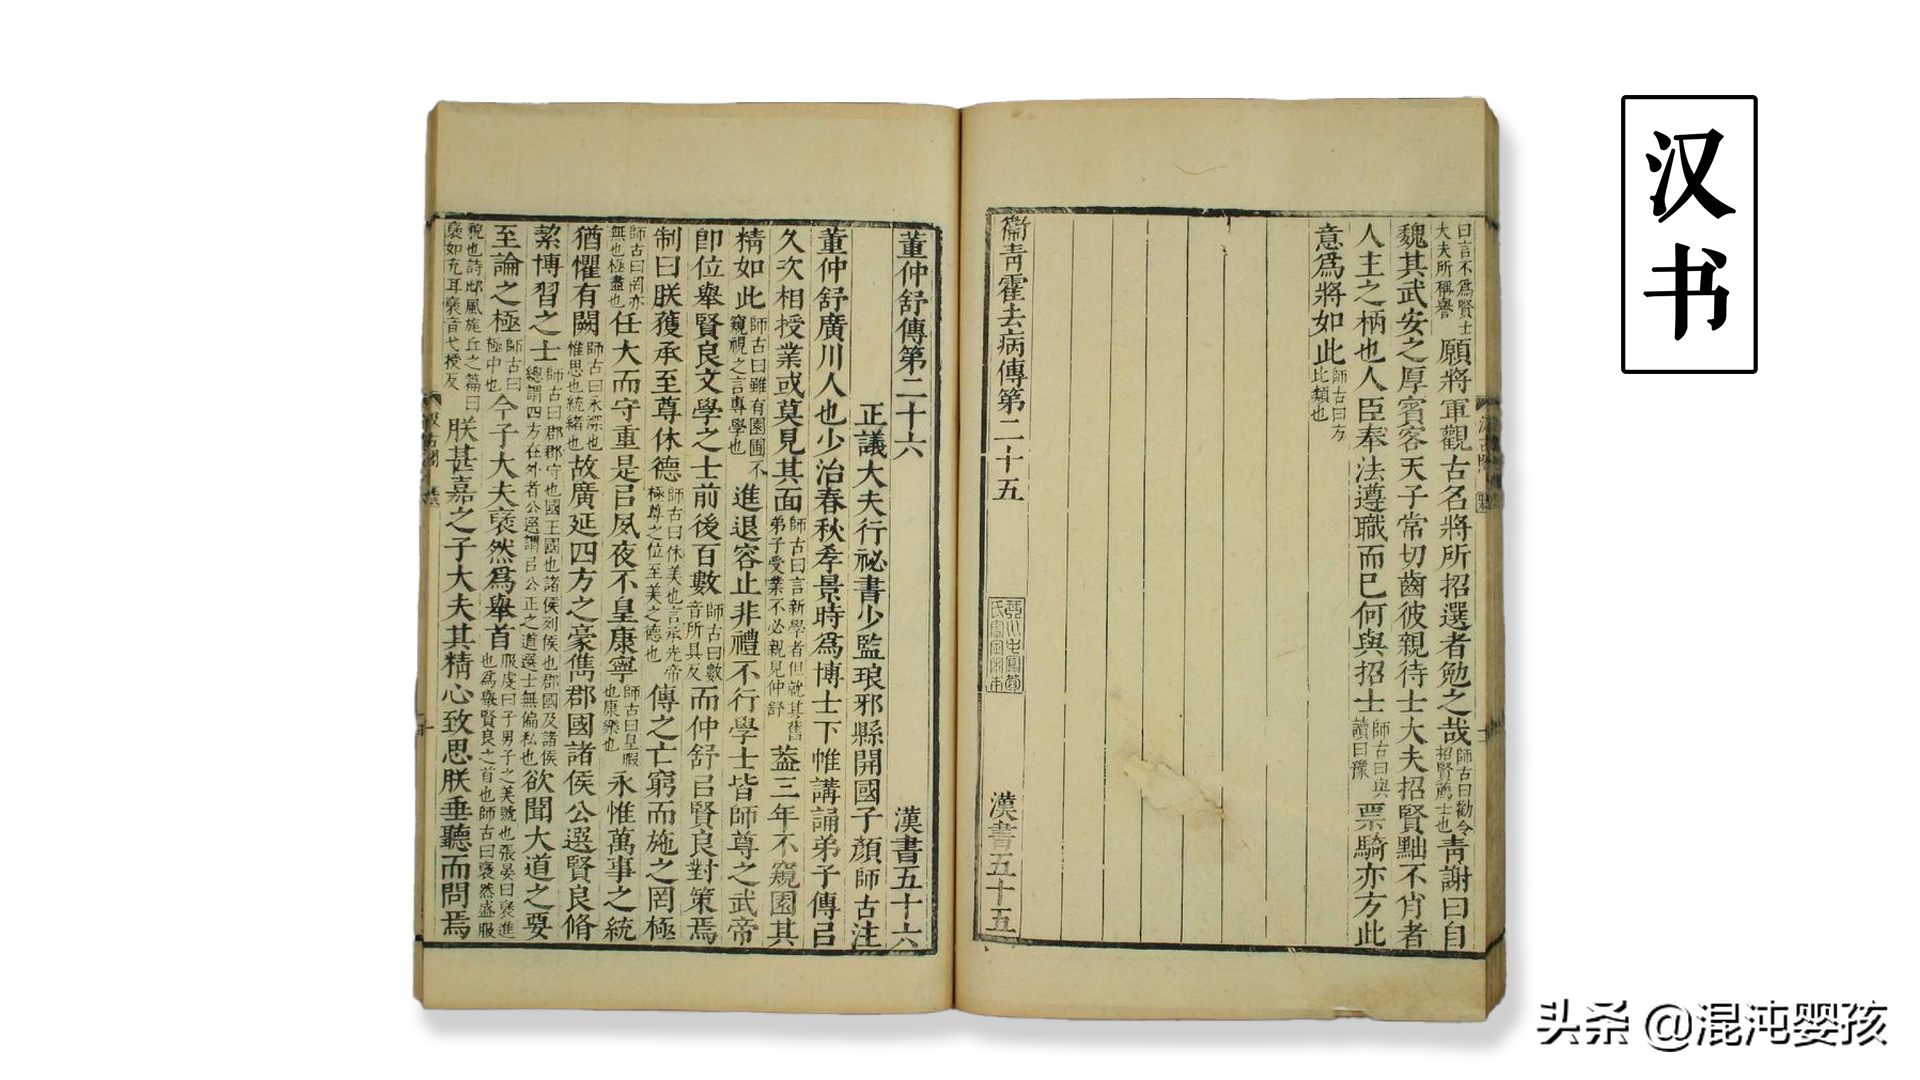 曰言不爲賢士
大夫所稱譽
願將軍觀古名將所招選者勉之哉
師古曰勸令
招賢薦士也
青謝曰自
魏其武安之厚賓客天子常切齒彼親待士大夫招賢黜不肖者
人主之柄也人臣奉法遵職而已何與招士
師古曰與
讀曰豫
票騎亦方此
意爲將如此
師古曰方
此類也
衞青霍去病傳第二十五
漢書五十五
董仲舒傳第二十六
漢書五十六
正議大夫行祕書少監琅邪縣開國子顏師古注
董仲舒廣川人也少治春秋孝景時爲博士下帷講誦弟子傳㠯
久次相授業或莫見其面
師古曰言新學者但就其舊
弟子受業不必親見仲舒
蓋三年不窺園其
精如此
師古曰雖有園圃不
窺視之言專學也
進退容止非禮不行學士皆師尊之武帝
卽位舉賢良文學之士前後百數
師古曰數
音所具反
而仲舒㠯賢良對策焉
制曰朕獲承至尊休德
師古曰休美也言承先帝
極尊之位至美之德也
傳之亡窮而施之罔極
師古曰罔亦
無也極盡也
任大而守重是㠯夙夜不皇康寧
師古曰皇暇
也康樂也
永惟萬事之統
猶懼有闕
師古曰永深也
惟思也統緒也
故廣延四方之豪儁郡國諸侯公選賢良脩
絜博習之士
師古曰郡郡守也國王國也諸侯列侯也郡國及諸侯
總謂四方在外者公選謂㠯公正之道選士無偏私也
欲聞大道之要
至論之極
師古曰
極中也
今子大夫褎然爲舉首
服虔曰子男子之美號也張晏曰褎進
也爲舉賢良之首也師古曰褎然盛服
貌也詩邶風旄丘之篇曰
褎如充耳褎音弋授反
朕甚嘉之子大夫其精心致思朕垂聽而問焉
汉书
头条 @混沌婴孩